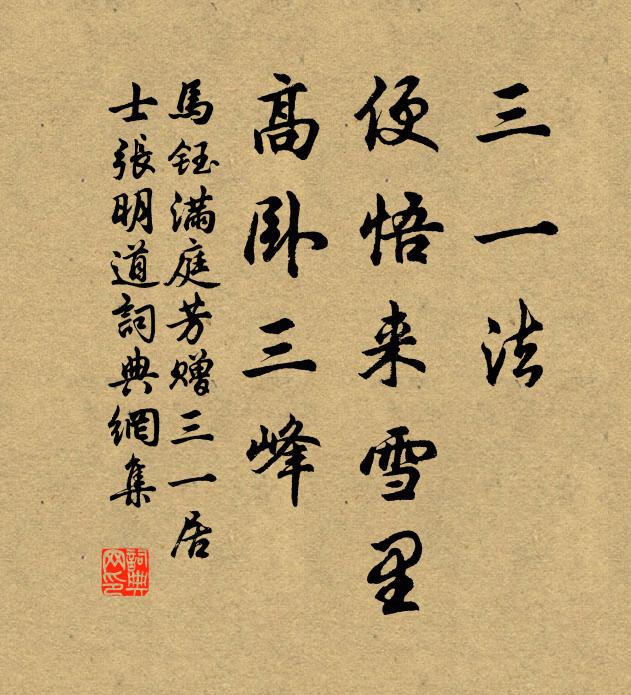 三一法
便悟来雪里
高卧三峰
馬鈺滿庭芳贈三一居
士張明道詞典網集
詞典网印